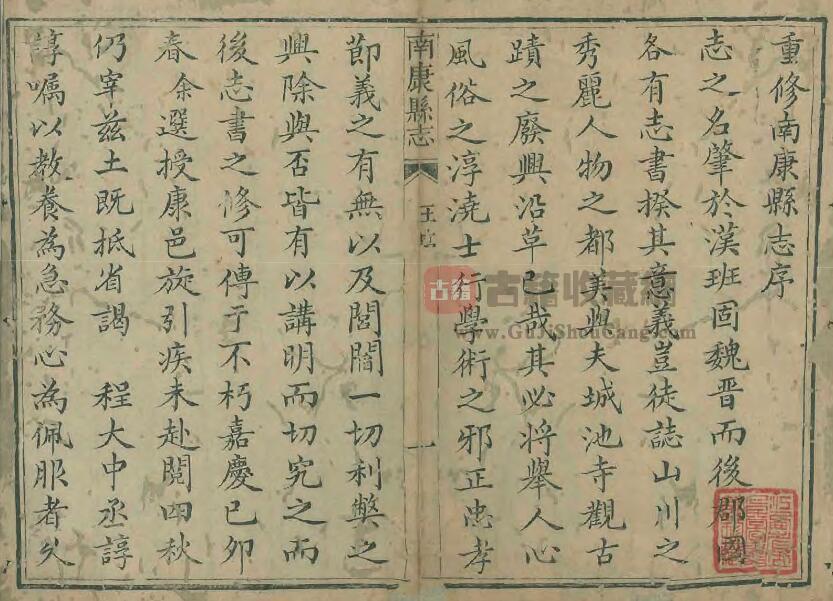 重修南康縣志序
志之名肇於漢班固魏晋而後郡國
各有志書揆其意義豈徒誌山川之
秀麗人物之都美與夫城池寺觀古
蹟之廢興沿革已哉其必將舉人心
風俗之淳澆士行學術之邪正忠孝
南康縣志
王序
一
節義之有無以及閭閻一切利獘之
興除與否皆有以講明而切究之而
後志書之修可傳于不朽嘉慶己卯
春余選授康邑旋引疾未赴閱四秋
仍宰茲土既抵省謁 程大中丞諄
諄囑以教養為急務心為佩服者久
古籍 古籍收藏網
www.GuJiShouCang.com